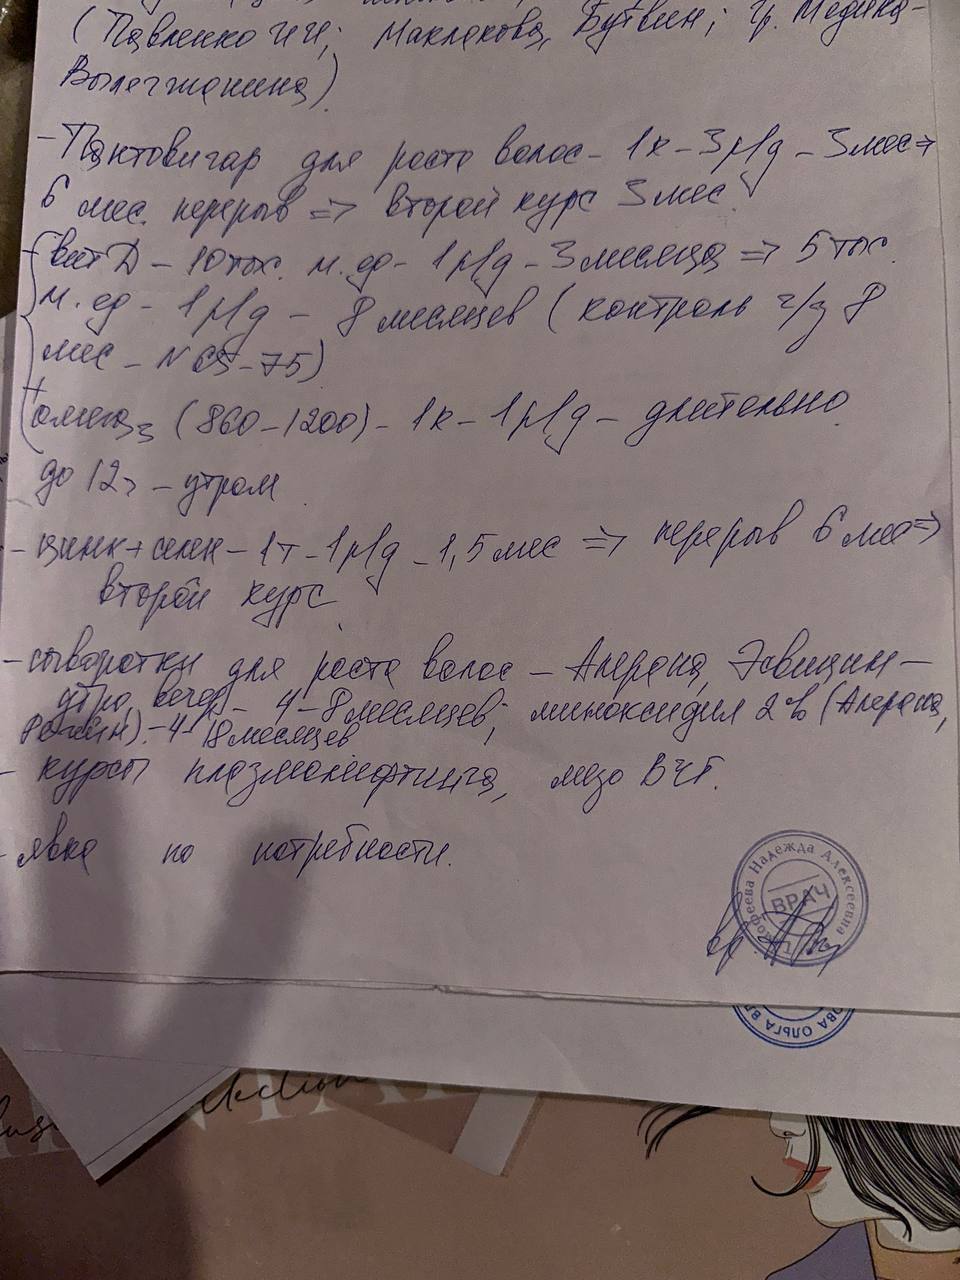 (Павленко И.И; Маклакова, Бутвин; гр. Медика-
Вылегжанина)
- Пантовигар для роста волос - 1к - 3р/д - 3 мес ⇒
6 мес. перерыв ⇒ второй курс 3 мес.
вит Д - 10 тыс. м. ед - 1р/д - 3 месяца ⇒ 5 тыс.
м. ед - 1р/д - 8 месяцев (контроль ч/з 8
мес - N 65-75)
+
омега 3 (860-1200) - 1к - 1р/д - длительно
до 12ч - утром
- цинк + селен - 1т - 1р/д - 1,5 мес ⇒ перерыв 6 мес ⇒
второй курс
- сыворотки для роста волос - Алерана, Эсвицин -
утро, вечер - 4-8 месяцев; миноксидил 2% (Алерана,
- 4- 18 месяцев
- курсы плазмолифтинга, мезо ВЧГ.
- явка по потребности.
Надежда Алексеевна
ВРАЧ
ОВА ОЛЬГА ВЛ